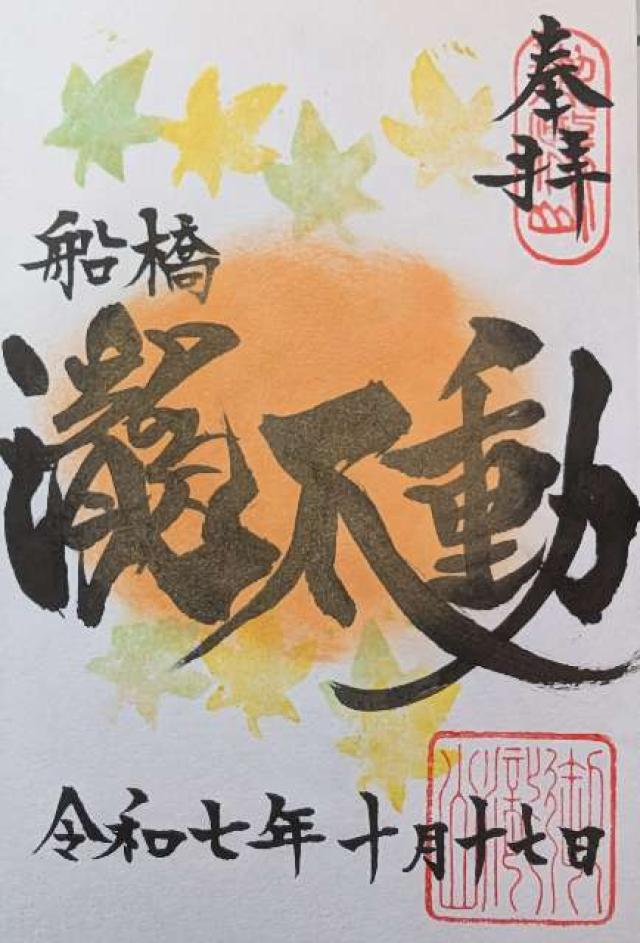 奉拝
船橋
瀧不動
令和七年十月十七日
御瀧山